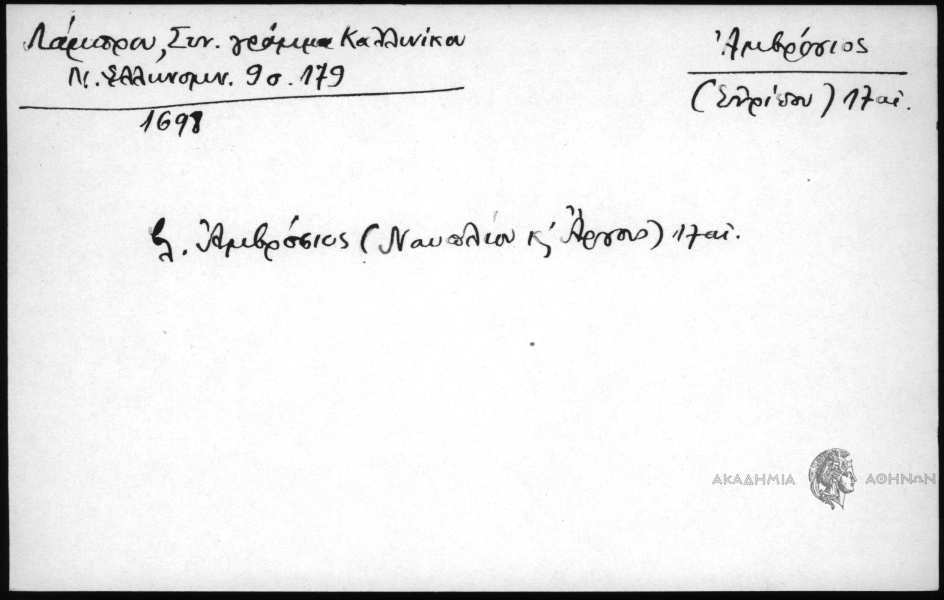 Λάμπρου, Συν. γράμμα Καλλινίκου
Ν. Ἑλληνομν. 9 σ. 179
1698
Ἀμβρόσιος
(Εὐρίπου) 17 αἰ.
Βλ. Ἀμβρόσιος (Ναυπλίου κ' Ἄργους) 17 αἰ.
ΑΚΑΔΗΜΙΑ ΑΘΗΝΩΝ